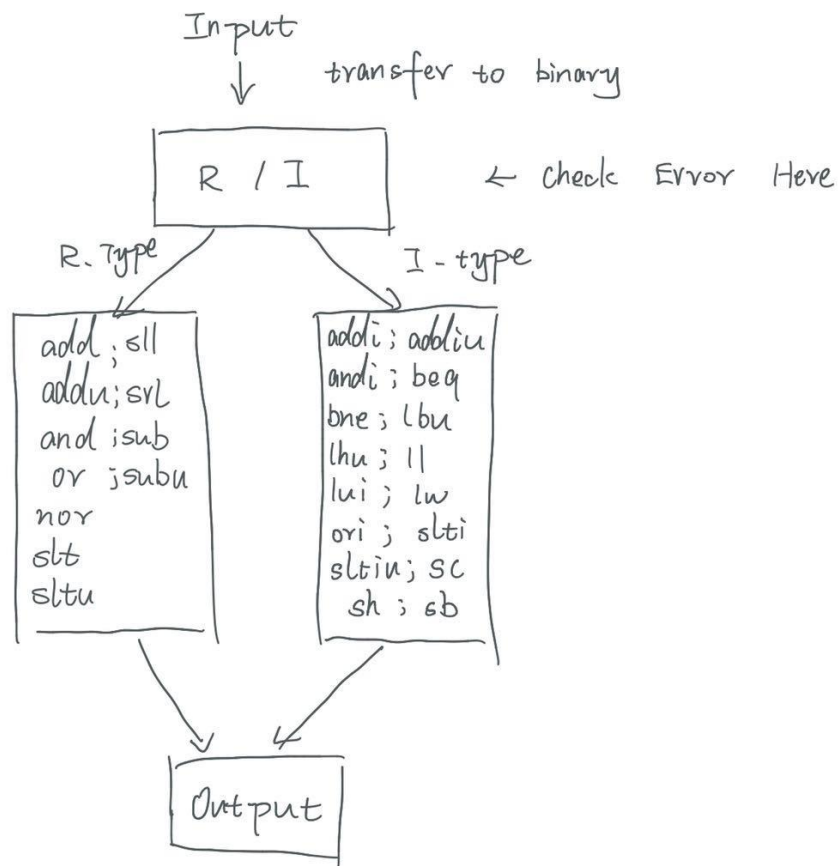 Input
transfer to binary
R / I
← Check Error Here
R-Type
I-type
add ; sll
addu ; srl
and ; sub
or ; subu
nor
slt
sltu
addi ; addiu
andi ; beq
bne ; lbu
lhu ; ll
lui ; lw
ori ; slti
sltiu ; sc
sh ; sb
Output